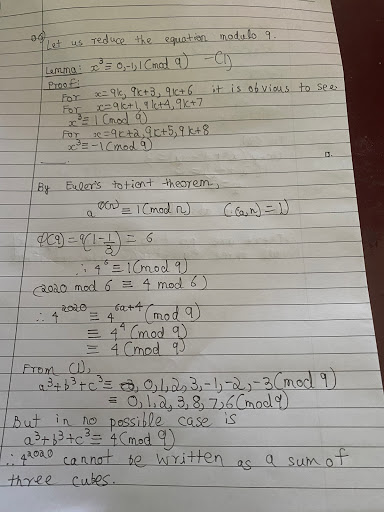 Let us reduce the equation modulo 9.
Lemma: x³ ≡ 0,-1,1 (mod 9) —(1)
Proof:
For x=9k, 9k+3, 9k+6 it is obvious to see
For x=9k+1, 9k+4, 9k+7
x³≡ 1 (mod 9)
For x=9k+2, 9k+5, 9k+8
x³≡ -1 (mod 9)
By Euler's totient theorem,
a^ϕ(n) ≡ 1 (mod n) ((a,n)=1)
ϕ(9) = 9(1-1/3) = 6
∴ 4⁶ ≡ 1 (mod 9)
(2020 mod 6 ≡ 4 mod 6)
∴ 4²⁰²⁰ ≡ 4^6a+4 (mod 9)
≡ 4⁴ (mod 9)
≡ 4 (mod 9)
From (1),
a³+b³+c³ ≡ 0,1,2,3,-1,-2,-3 (mod 9)
≡ 0,1,2,3,8,7,6 (mod 9)
But in no possible case is
a³+b³+c³ ≡ 4 (mod 9)
∴ 4²⁰²⁰ cannot be written as a sum of
three cubes.